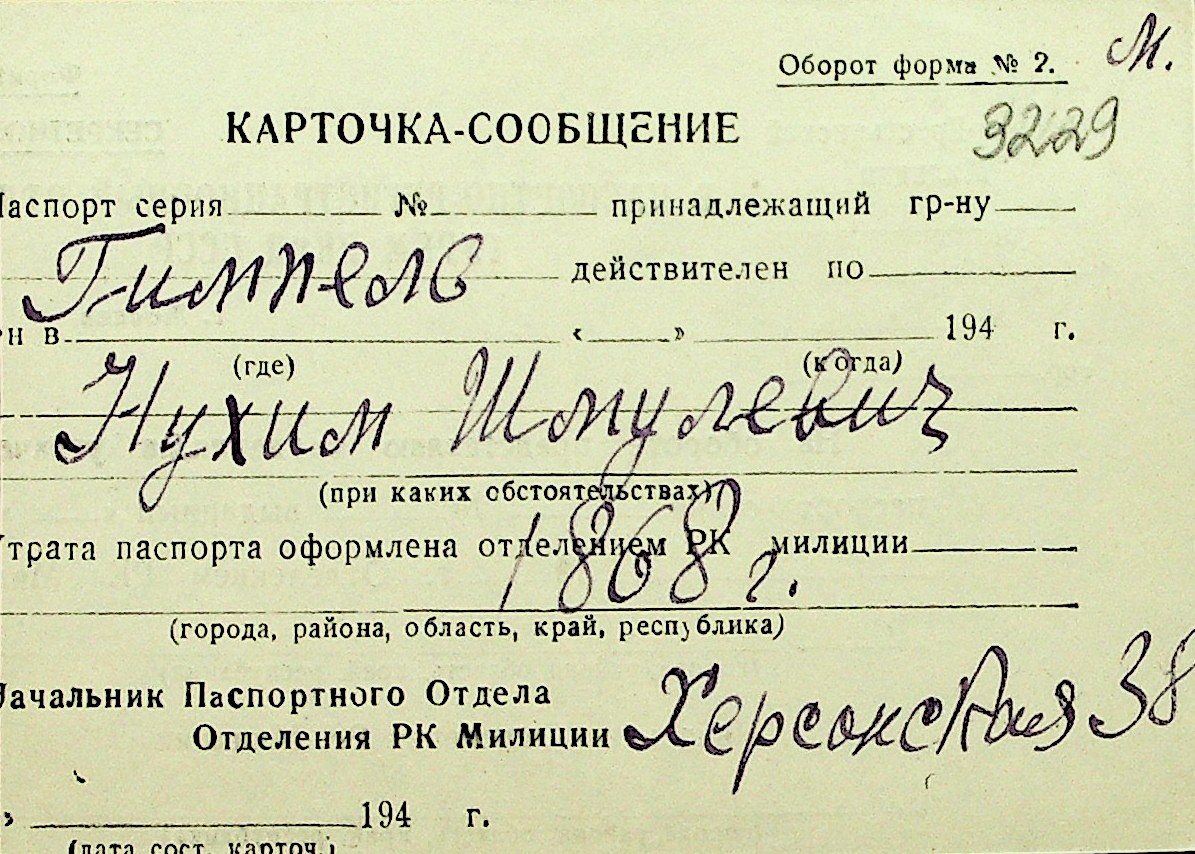 Оборот форма № 2. М.
КАРТОЧКА-СООБЩЕНИЕ 3229
Паспорт серия № принадлежащий гр-ну
Гимпель действителен по
н в « » 194 г.
(где) (когда)
Нухим Шмулевич
(при каких обстоятельствах)
Утрата паспорта оформлена отделением РК милиции
1868 г.
(города, района, область, край, республика)
Начальник Паспортного Отдела
Отделения РК Милиции Херсонская 38
» 194 г.
(дата сост. карточ.)